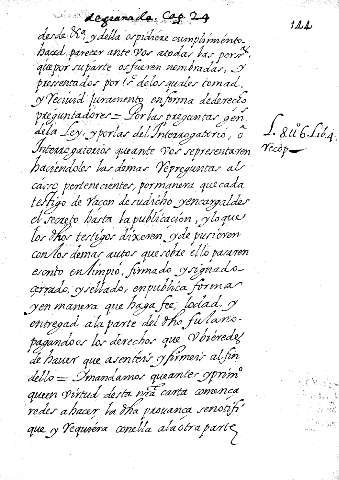 de granada. Cap. 24
144
desde dhª. y della os pidiere cumplimiento
haced parecer ante Vos atodas las pers.ª
que por su parte os fueren nombradas, y
presentados por tº. de los quales tomad,
y Reciuid Juramento en forma de derecho
preguntadores = Por las preguntas gen.
de la Ley, y por las del Interrogatorio, o
Interrogatorios que ante Vos se presentaren
haciendoles las demas Repreguntas al
caso pertenecientes, por manera que cada
testigo de raçon de su dicho, y encargaldes
el secreto hasta la publicacion, y lo que
los dhos testigos dixeren, y de pusieren
con los demas autos que sobre ello pasaren
escrito en limpio, firmado, y signado
cerrado, y sellado, en publica forma
y en manera que haga fee, lo dad, y
entregad a la parte del dho fulano
pagandoos los derechos que Uviere de
de hauer que asenteis y firmeis al fin
dello = I mandamos que antes y prim.º
que en virtud desta nrâ carta comenca
redes a hacer la dha provança se notifi
que y Requiera con ella a la otra parte
L. 8. tiº 6. Lib. 4.
recop